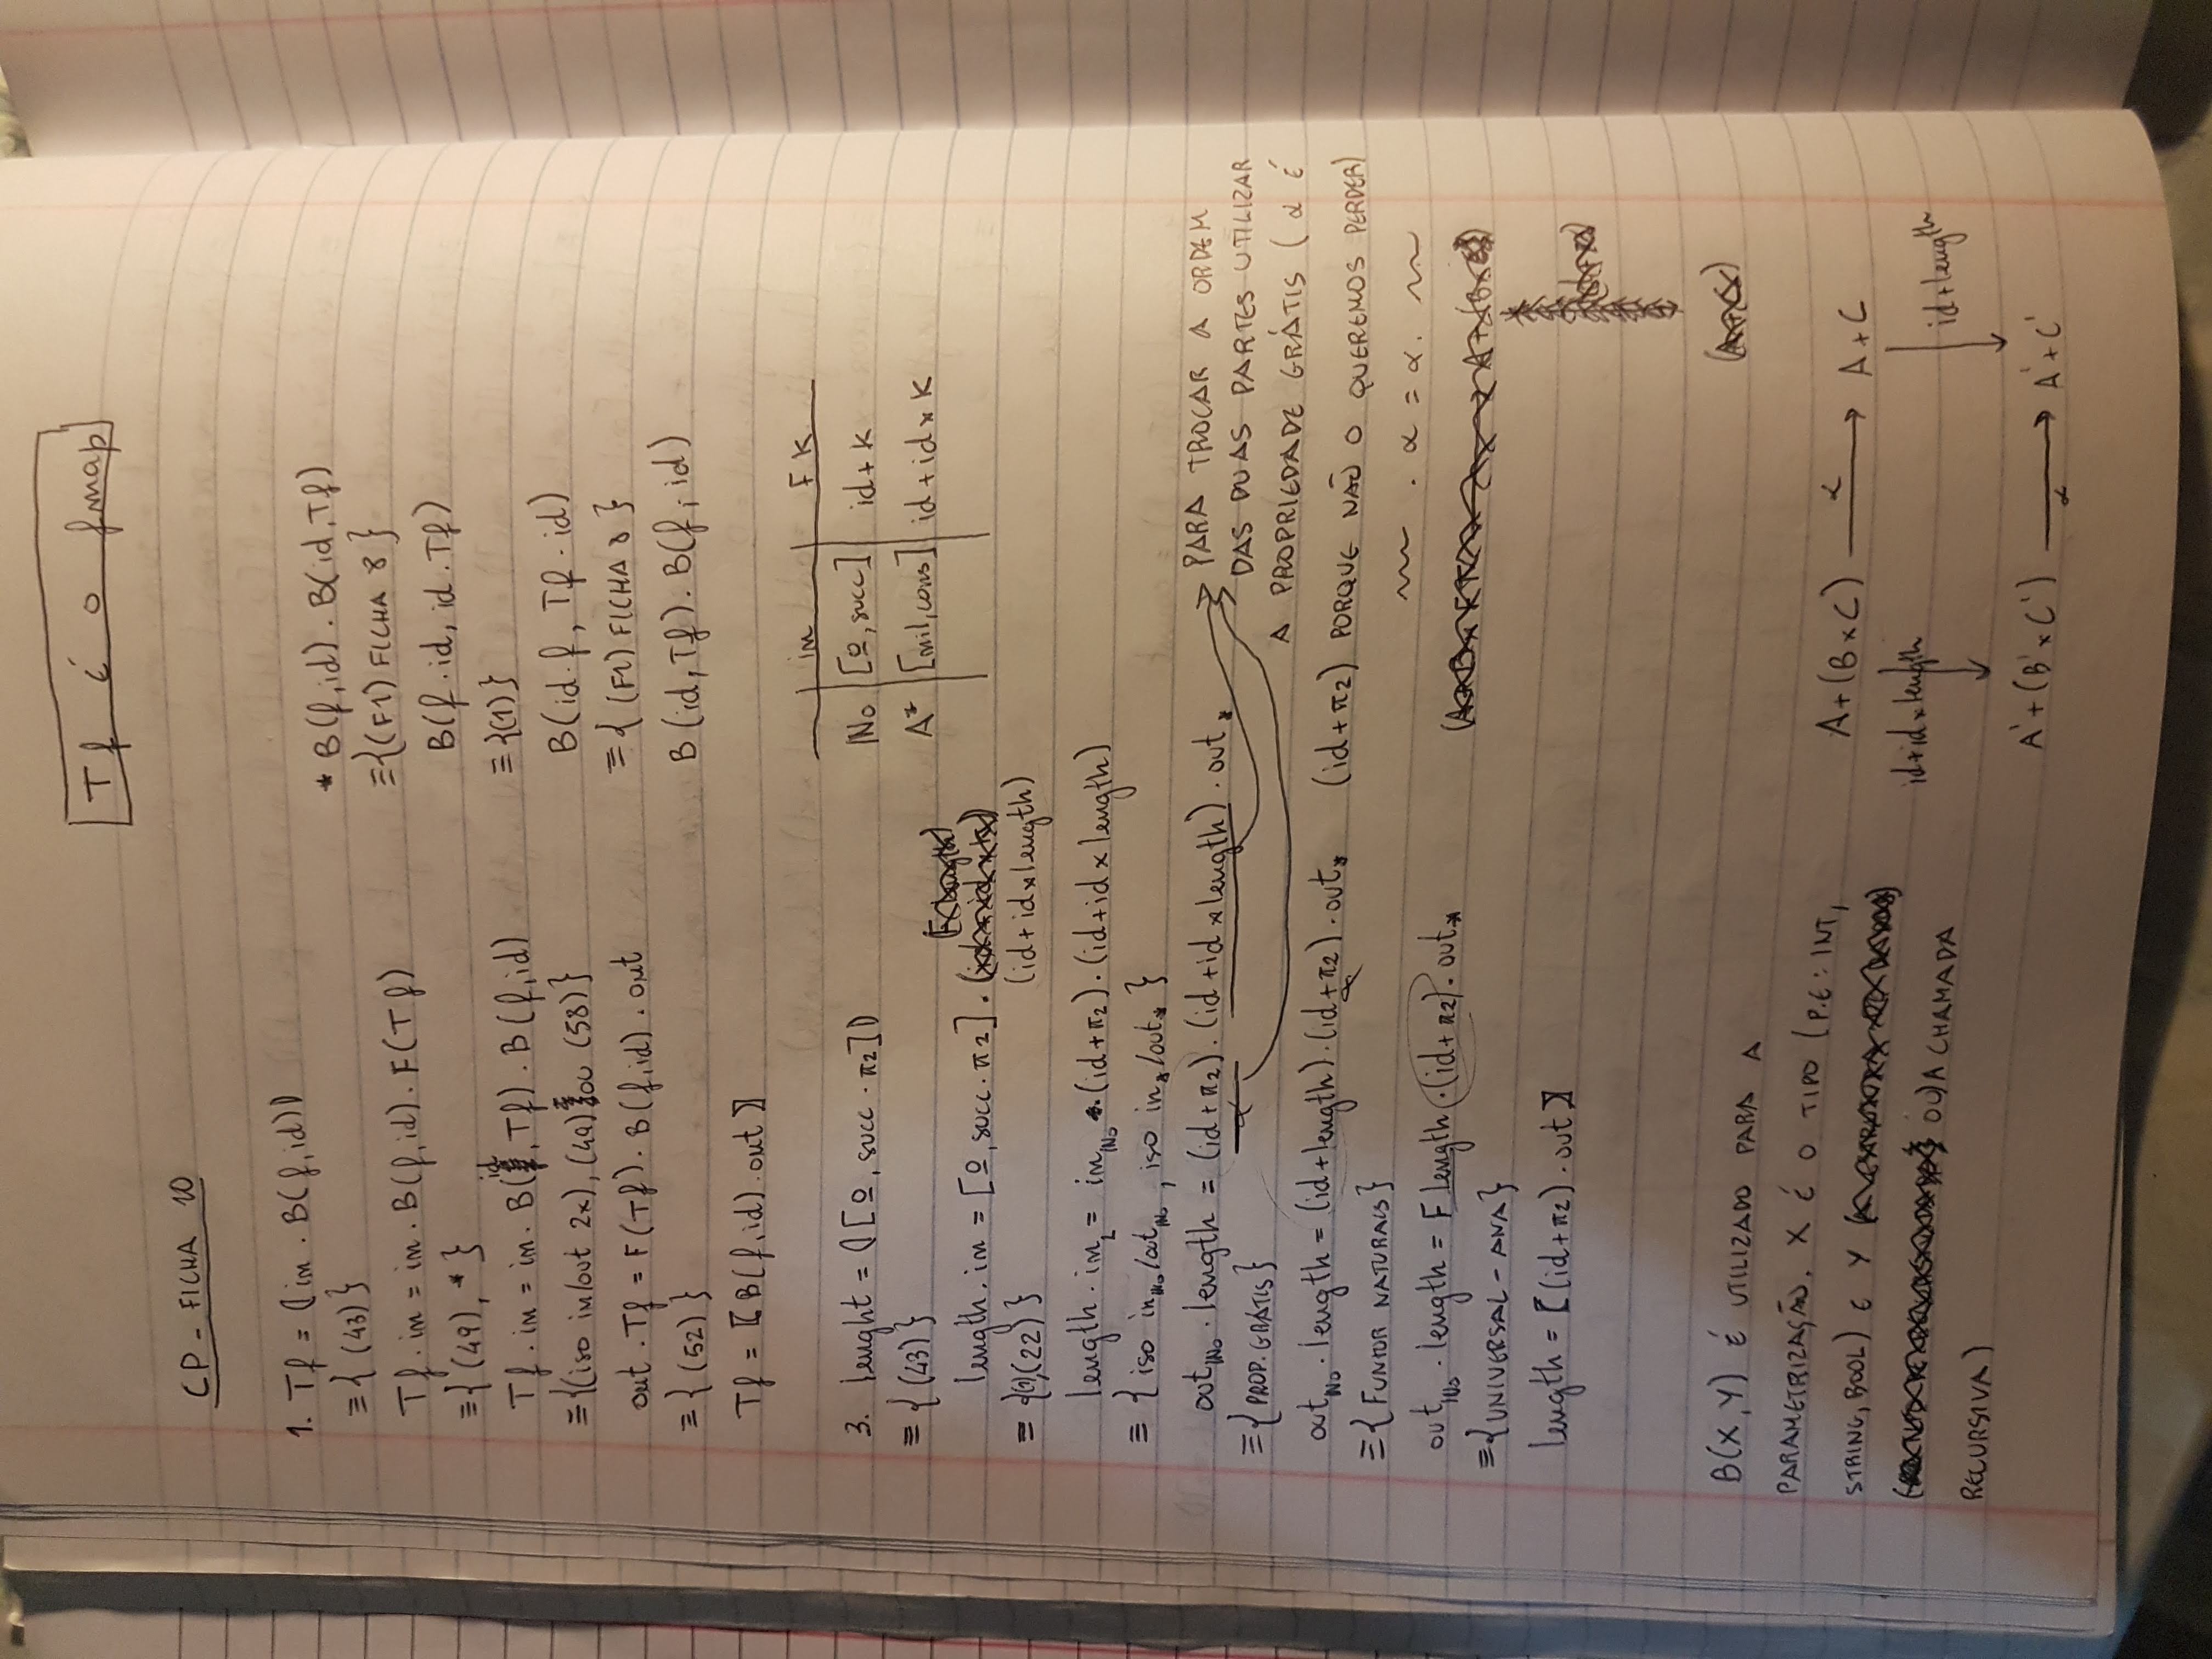 Tf é o fmap
CP - FICHA 10
1. Tf = ⦇in . B(f,id)⦈
≡{ (43) }
Tf . in = in . B(f,id) . F(Tf)
≡{ (49), * }
Tf . in = in . B(id, Tf) . B(f,id)
≡{(iso in/out 2x), (49) ou (58)}
out . Tf = F(Tf) . B(f,id) . out
≡{ (52) }
Tf = 〖B(f,id) . out〗
* B(f,id) . B(id,Tf)
≡{(F1) FICHA 8 }
B(f . id, id . Tf)
≡{(1)}
B(id . f, Tf . id)
≡{ (F1) FICHA 8 }
B(id,Tf) . B(f, id)
3. lenght = ⦇[0, succ . π2]⦈
≡ { (43) }
length . in = [0, succ . π2] .
(id+id×length)
≡ {(1),(22) }
length . in2 = inℕ0 . (id+π2) . (id+id×length)
≡ { iso inℕ0/outℕ0 , iso in*/out* }
outℕ0 . length = (id+π2) . (id+id×length) . out*
α
≡{PROP. GRÁTIS}
outℕ0 . length = (id+length) . (id+π2) . out*
α
≡{FUNTOR NATURAIS}
outℕ0 . length = F length . (id+π2) . out*
≡{UNIVERSAL-ANA}
length = 〖(id+π2) . out〗
in F K
ℕ0 [0, succ] id + K
A* [nil, cons] id + id × K
PARA TROCAR A ORDEM
DAS DUAS PARTES UTILIZAR
A PROPRIEDADE GRÁTIS (α É
(id+π2) PORQUE NÃO O QUEREMOS PERDER)
~~ . α = α . ~~
B(X,Y) É UTILIZADO PARA A
PARAMETRIZAÇÃO. X É O TIPO (P.E: INT,
STRING, BOOL) E Y
OU) A CHAMADA
RECURSIVA)
A+(B×C) α A+C
id+id×length id+length
A'+(B'×C') α A'+C'